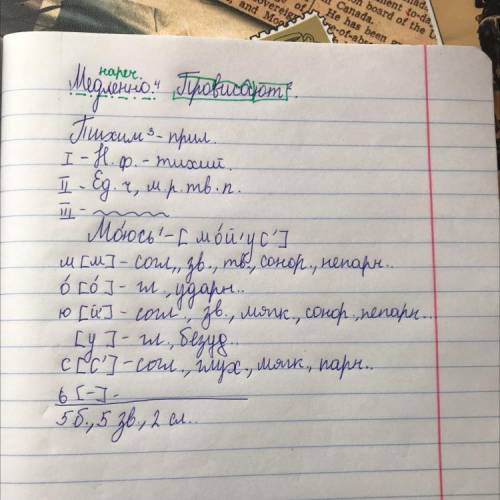 of-abou
нареч.
Медленно.⁴ Провисают².
Тихим³ - прил.
I - Н.ф. - тихий.
II - Ед.ч, м.р. тв.п.
III -
Моюсь¹ - [мо́й'ус']
м [м] - согл., зв., тв., сонор., непарн..
о́ [о́] - гл., ударн..
ю [й'] - согл., зв., мягк., сонор., непарн..
[у] - гл., безуд..
с [с'] - согл., глух., мягк., парн..
ь [-] -
5 б., 5 зв., 2 сл..